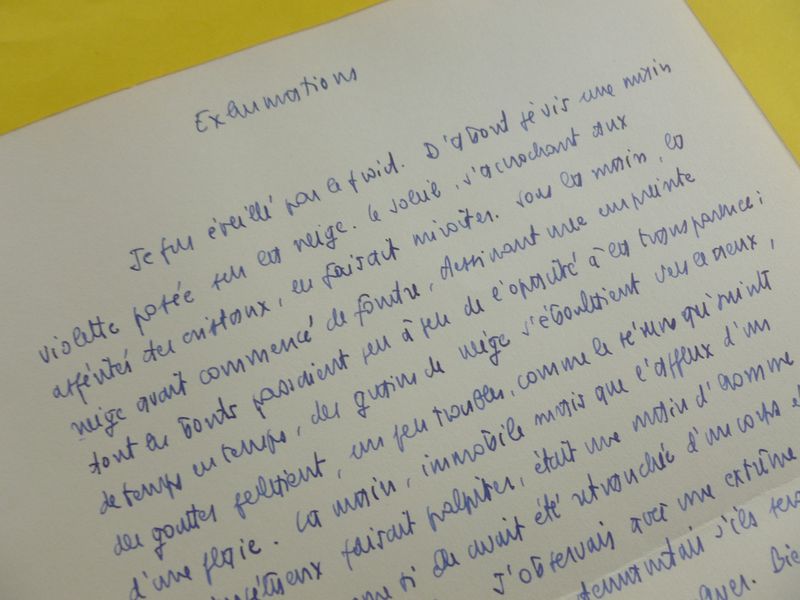 Exhumations
Je fus éveillé par le froid. D'abord je vis une main
violette posée sur la neige. Le soleil, s'accrochant aux
aspérités des cristaux, en faisait miroiter. Sous la main, la
neige avait commencé de fondre, dessinant une empreinte
dont les bords passaient peu à peu de l'opacité à la transparence ;
de temps en temps, des grains de neige s'éboulaient vers le creux,
des gouttes perlaient, un peu troubles, comme le sérum qui suinte
d'une plaie. La main, immobile mais que l'afflux d'un
faisait palpiter, était une main d'homme
si elle avait été retranchée d'un corps et
J'observais avec une extrême
s'ils
Bie